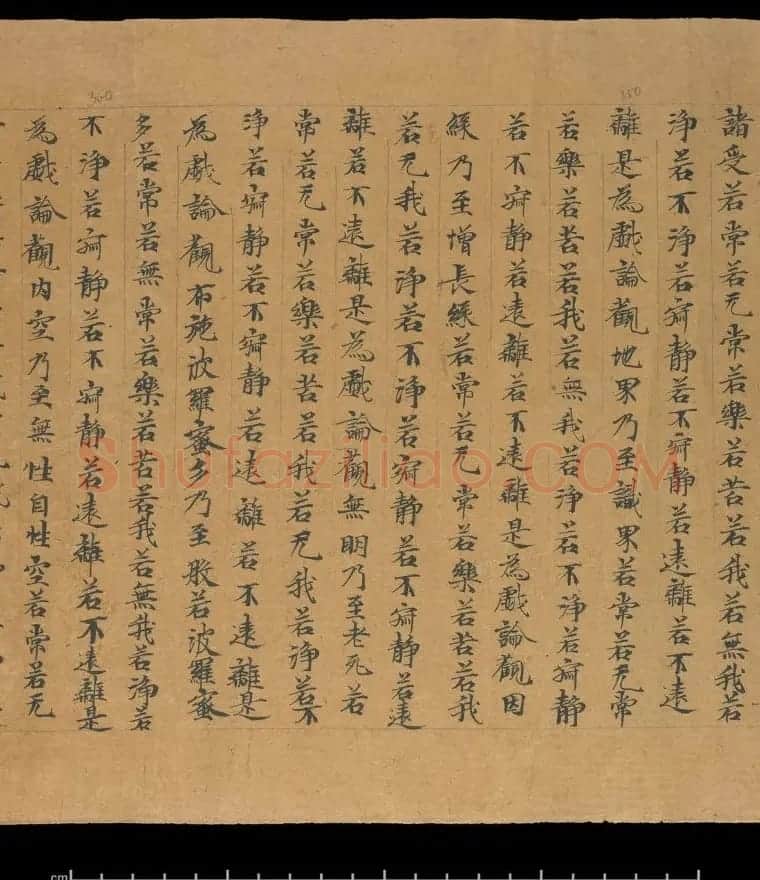 諸受若常若无常若樂若苦若我若無我若
淨若不淨若寂靜若不寂靜若遠離若不遠
離是為戲論觀地界乃至識界若常若无常
若樂若苦若我若無我若淨若不淨若寂靜
若不寂靜若遠離若不遠離是為戲論觀因
緣乃至增長緣若常若无常若樂若苦若我
若无我若淨若不淨若寂靜若不寂靜若遠
離若不遠離是為戲論觀無明乃至老死若
常若无常若樂若苦若我若无我若淨若不
淨若寂靜若不寂靜若遠離若不遠離是
為戲論觀布施波羅蜜多乃至般若波羅蜜
多若常若無常若樂若苦若我若無我若淨若
不淨若寂靜若不寂靜若遠離若不遠離是
為戲論觀內空乃至無性自性空若常若无
350
Shufaziliao.COM
cm